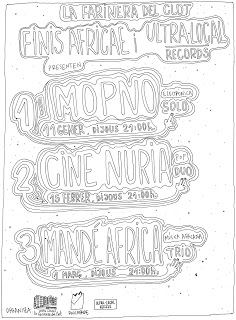 LA FARINERA DEL CLOT
FINIS AFRICAE i ULTRA-LOCAL
RECORDS
PRESENTEN
1 MOPNO
ELECTRONICA
SOLO
11 GENER, DIJOUS 21:00h.
2 CINE NURIA
POP
DUO
15 FEBRER, DIJOUS 21:00h.
3 MANDÉ AFRICA
MÚSICA AFRICANA
TRIO
1 MARÇ, DIJOUS 21:00h.
ORGANITZA
ULTRA-LOCAL
RECORDS